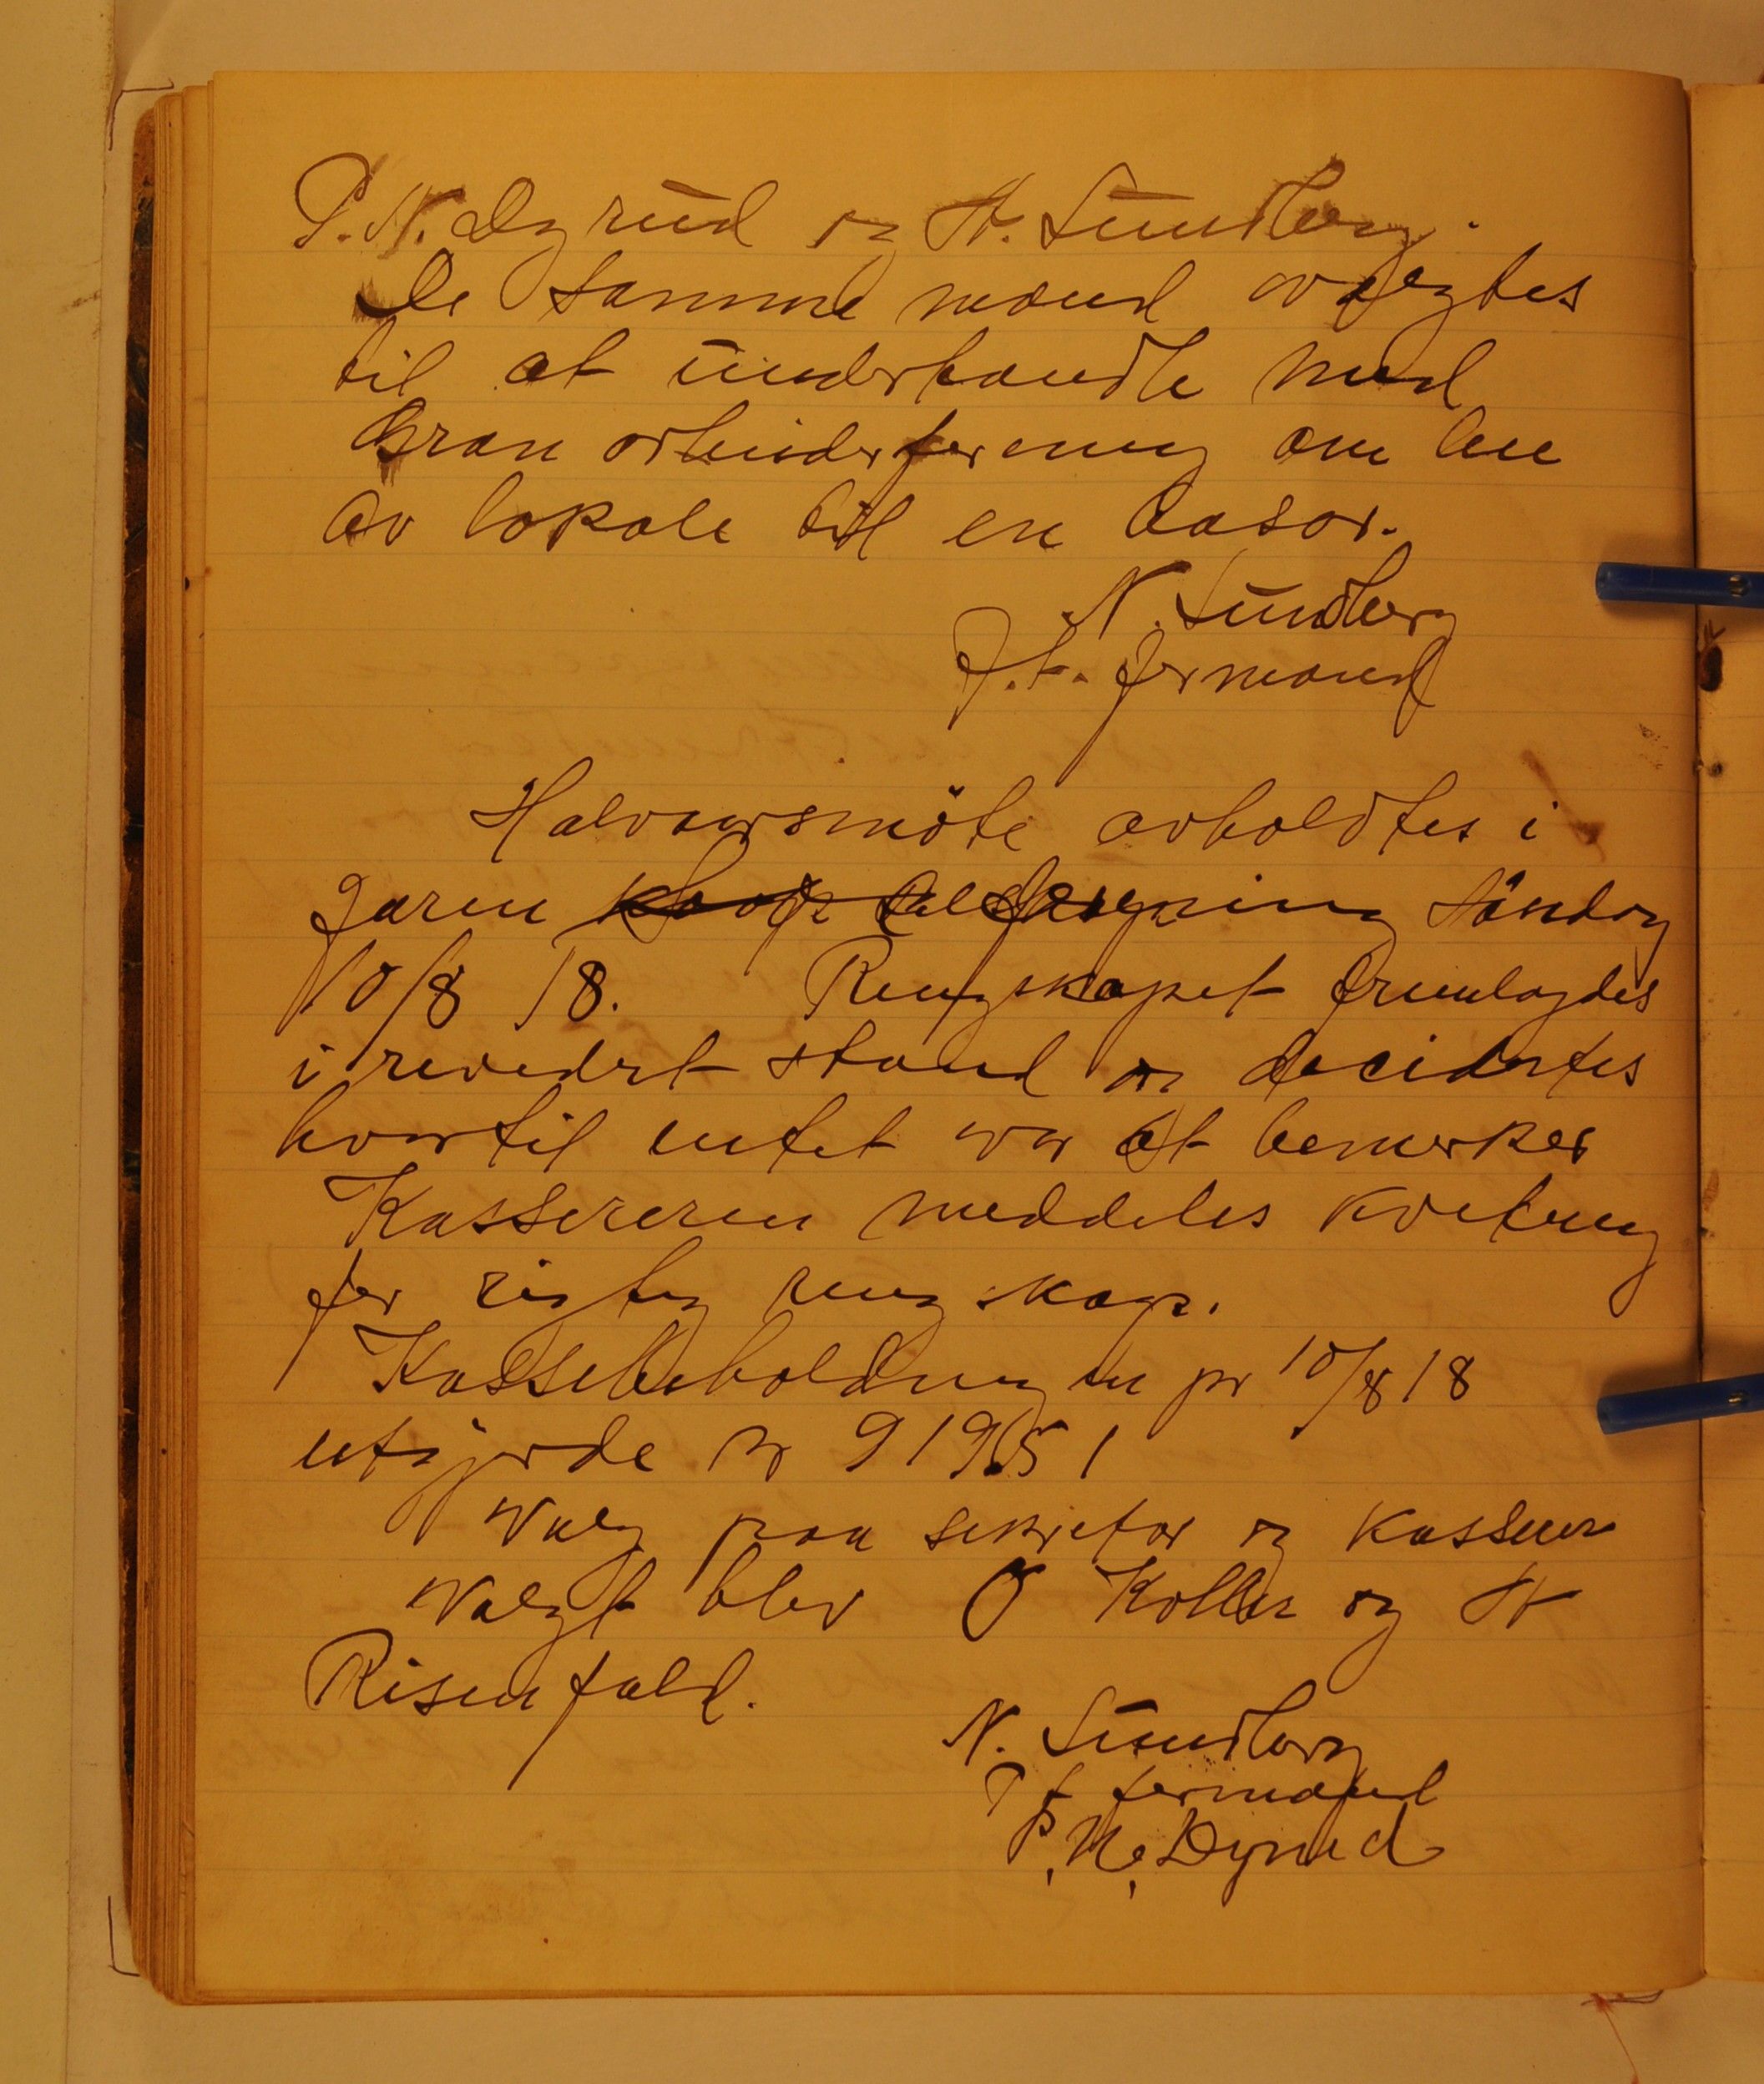 P. N. Dynud og N. Sundberg.
De samme mænd valgtes
til at underhandle med
Bran arbeiderforening om leie
av lokale til en basar.
N. Sundberg
F.t. formand
Halvaarsmöte avholdtes i
Jaren söndag
10/8 18. Rengskapet fremlagdes
i revidert stand og decidertes
hvortil intet var at bemerker
Kassereren meddeles kvitering
for rigtig rengskap.
Kassebeholdningen pr 10/8 18
utgjorde kr 919.51
Valg paa sekretær og Kasserer
Valgt blev O Koller og H
Risenfald.
N. Sundberg
F t formand
P. N. Dynud